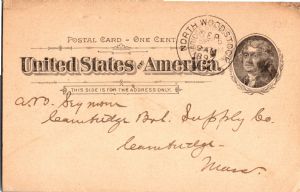 POSTAL CARD - ONE CENT
United States of America.
THIS SIDE IS FOR THE ADDRESS ONLY.
NORTH WOODSTOCK
9 AM
Seymour
Cambridge Bot. Supply Co.
Cambridge-
Mass.